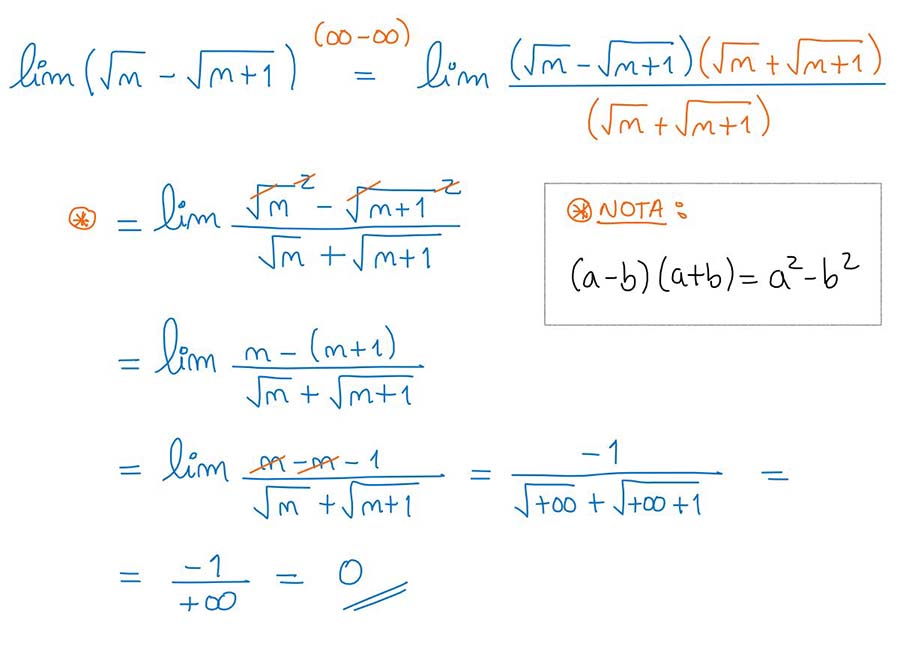 lim (√m - √(m+1)) (∞-∞) = lim ((√m - √(m+1))(√m + √(m+1)))/((√m + √(m+1)))
⊛ = lim (√m² - √(m+1)²)/(√m + √(m+1))
⊛ NOTA:
(a-b)(a+b) = a² - b²
= lim (m - (m+1))/(√m + √(m+1))
= lim (m - m - 1)/(√m + √(m+1)) = -1/(√+∞ + √(+∞+1)) =
= -1/+∞ = 0